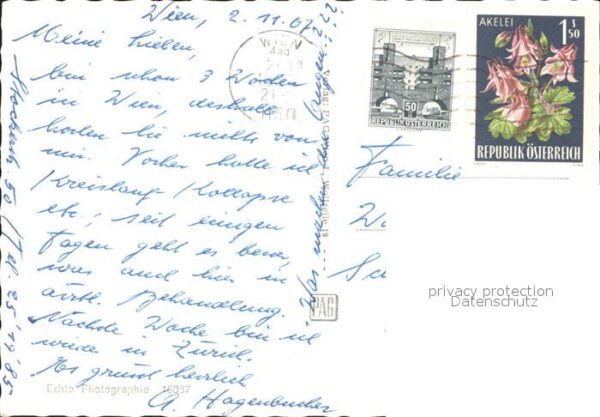 Wien, 2.11.67
Meine Lieben,
bin schon 3 Wochen
in Wien, deshalb
hörten Sie nichts von
mir. Vorher hatte ich
Kreislauf-Kollapse
etc.; seit einigen
Tagen geht es besser,
war auch hier in
ärztl. Behandlung.
Nächste Woche bin ich
wieder in Zürich.
Es grüsst herzlich
A. Hagenbucher
Was machen
Hochstr. 50 (Tel. 25'19'85
Echte Photographie 16037
PAG
WIEN
50
REPUBLIK ÖSTERREICH
AKELEI
1 S 50
REPUBLIK ÖSTERREICH
Familie
privacy protection
Datenschutz